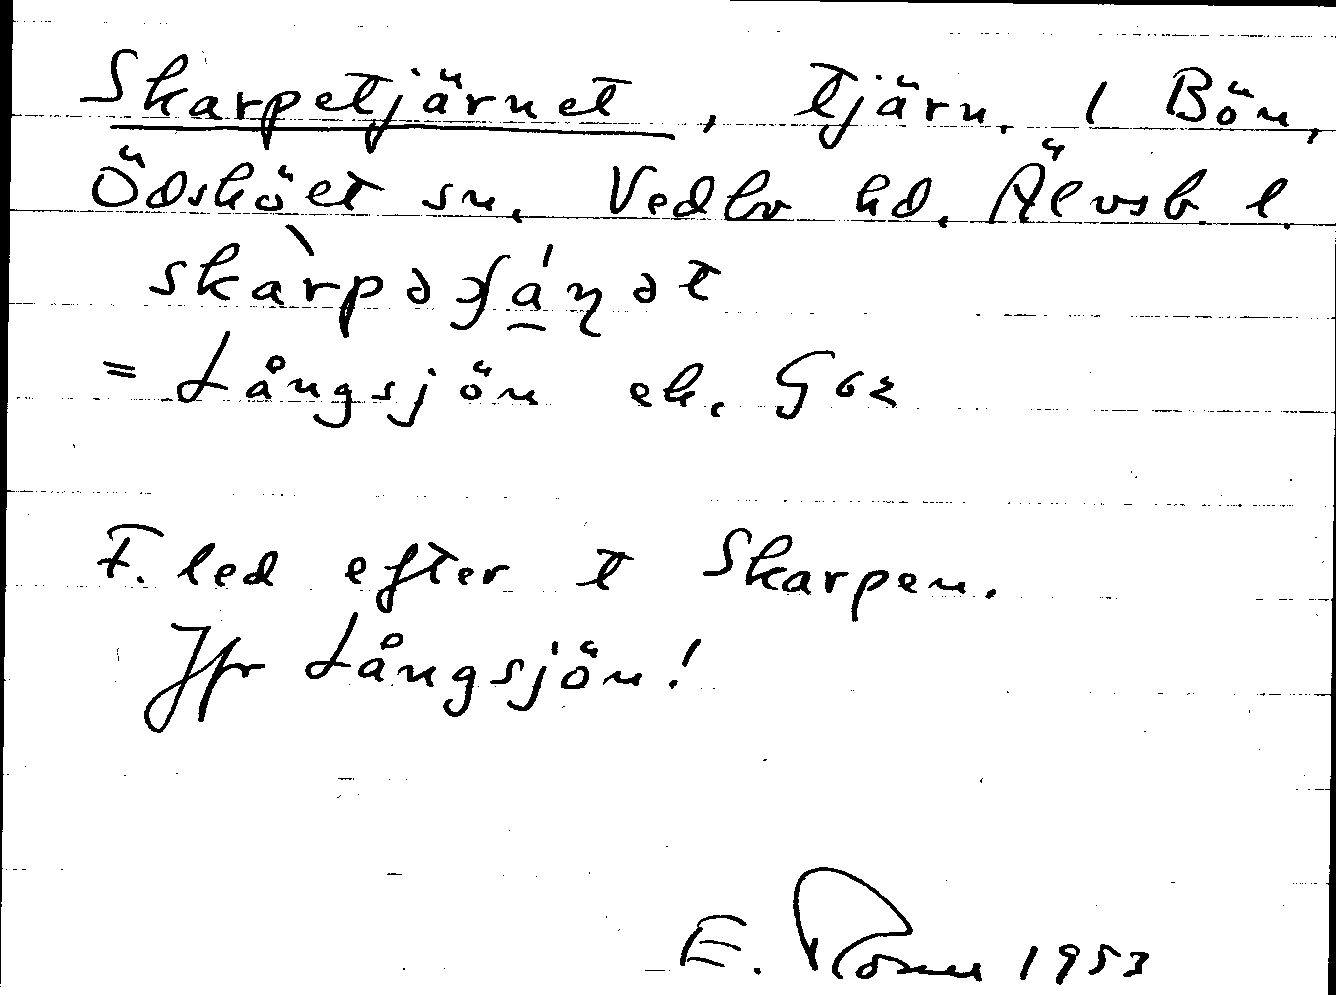 Skarpetjärnet, tjärn. I Bön,
Ödskölt sn. Vedbo hd. Älvsb. l.
= Långsjön ek. G 62
F. led efter t Skarpen.
Jfr Långsjön!
E. 1953